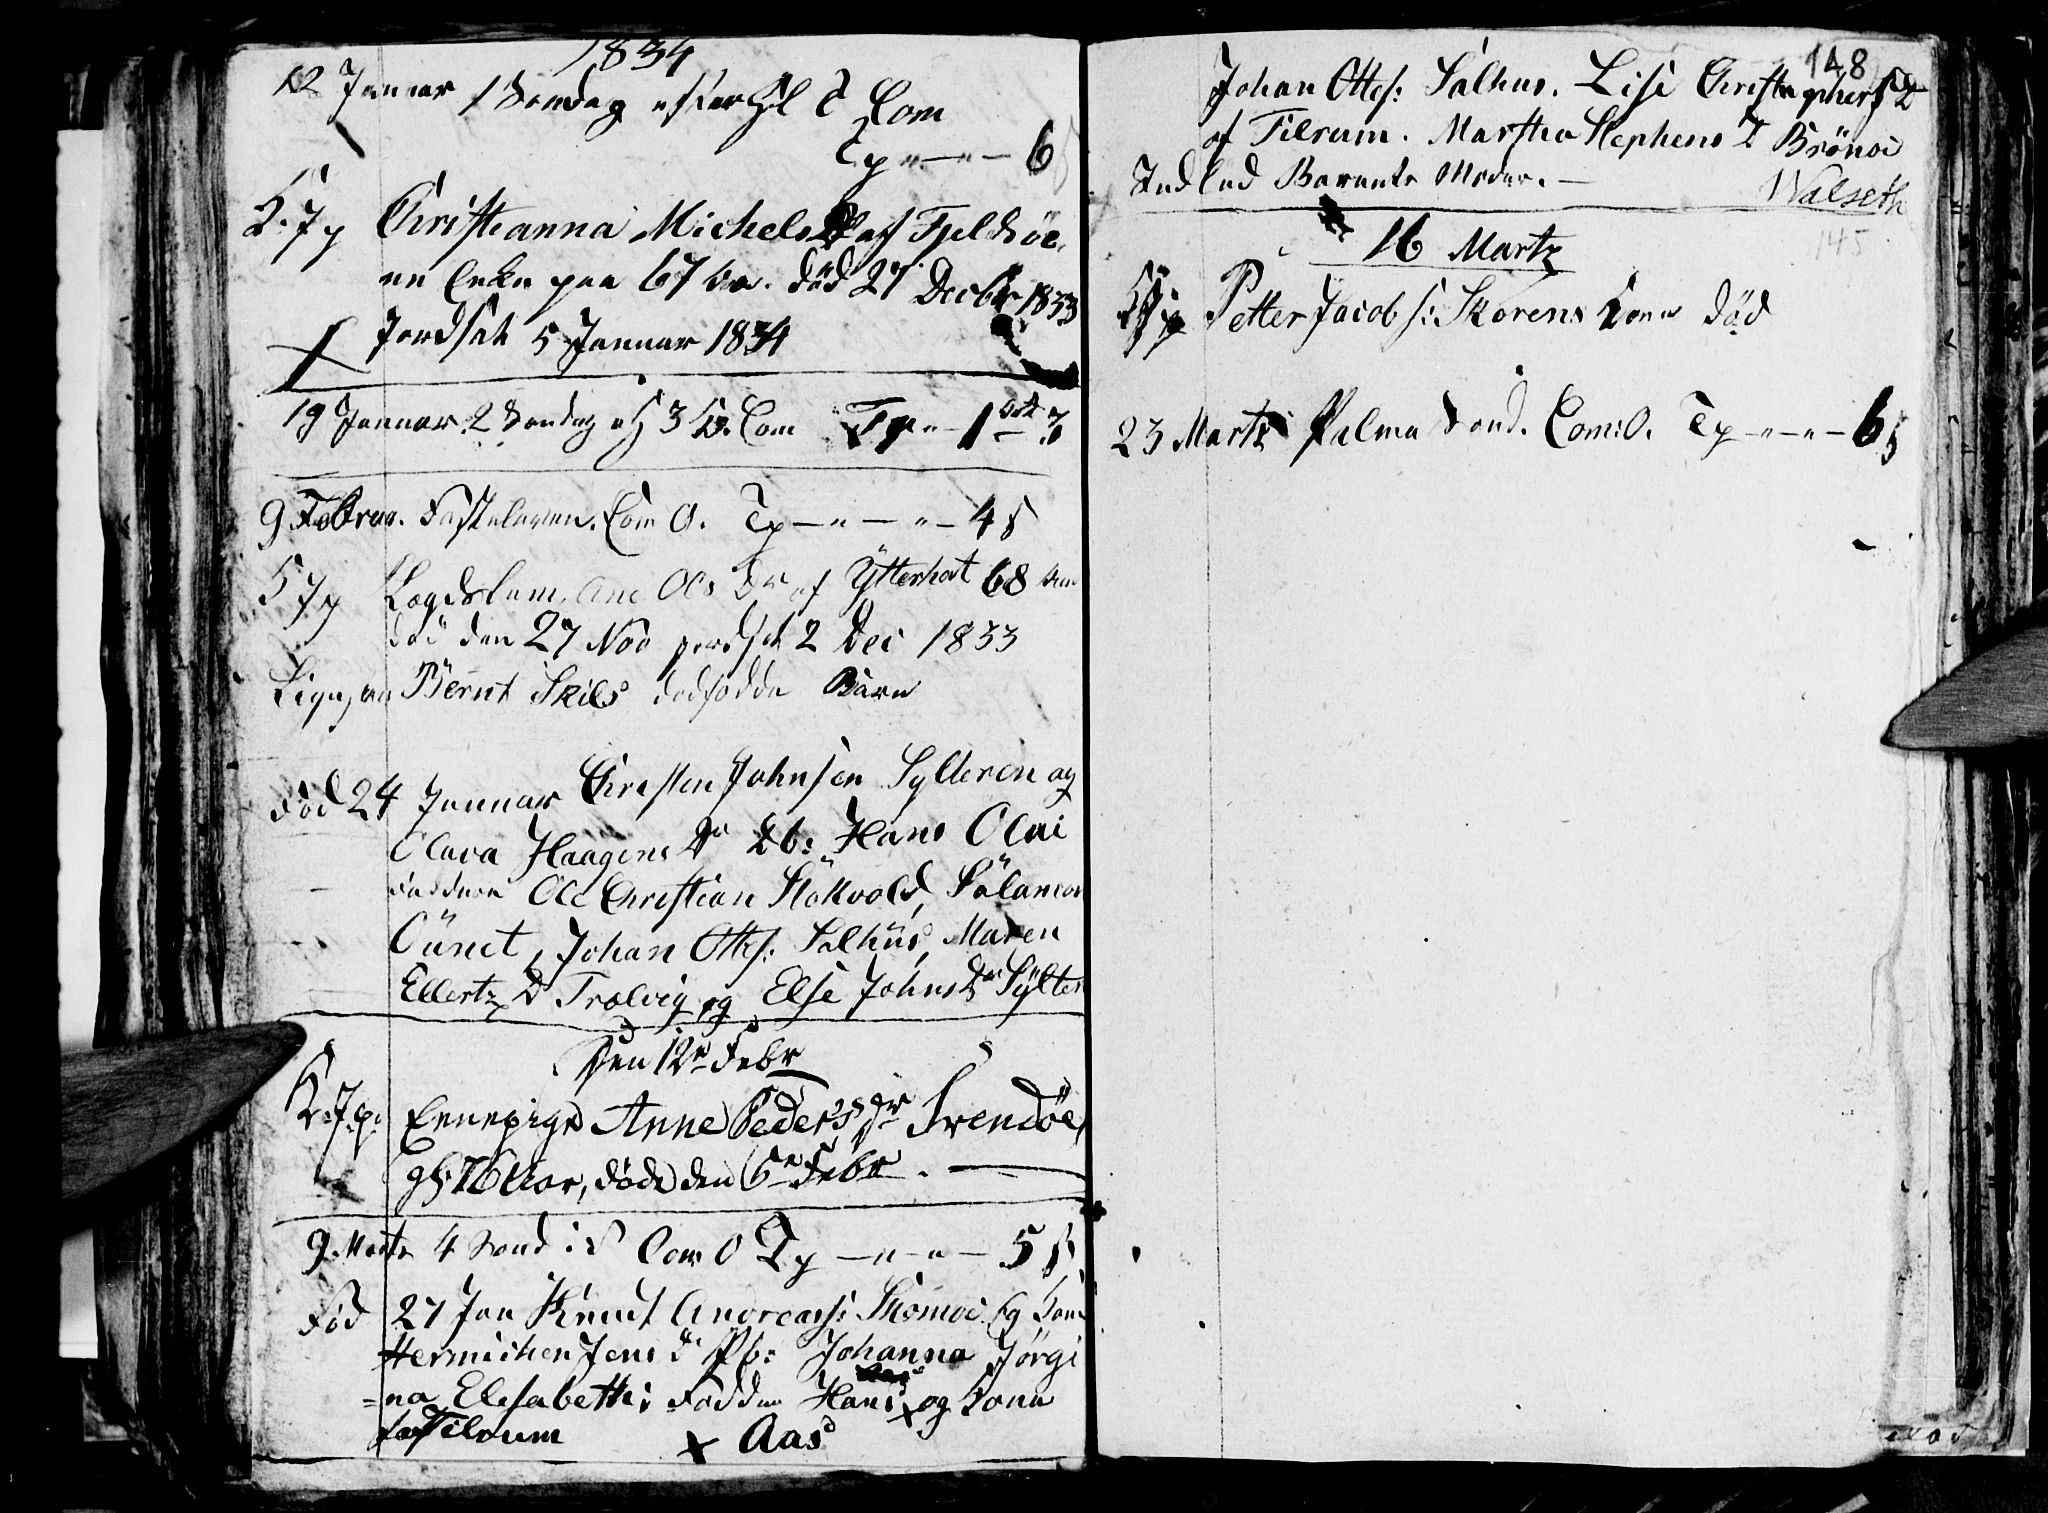 1834
12 Januar 1 Søndag efter H 3 K Com
Tp " — " — 6
K. J p Christianna Michels D af Fjeldsöe
en Enke paa 67 Aar. död 27 Decbr 1833
Jordsat 5 Januar 1834
19 Januar. 2 Søndag e H 3 K. Com Tp " — 1 3
9 Februa. Fastelaven. Com O. Tp — " — " — 4 s
K J p Lægdslem. Ane Ols Dr af Ytterhat 68 Aar
död den 27 Nov jordsat 2 Dec 1833
Bernt Skils dødfødde Barn
Fød 24 Januar Christen Johnsen Sylteren og
Olava Haagens Dr Db: Hans Olai
Faddere Ole Christian Stökvold, Salamon
Qünet, Johan Ottes: Salhüs, Maren
Ellertz D Trælvig og Else Johns Dr Sÿlter
Den 12te Febr
K. J. p. Enepige Anne Peders Dr Svendöe
gl: 76 Aar, døde den 6te Febr. —
9 Marts 4 Sond i F Com O Tp — " — " — 5 s
Fød 27 Jan Knud Andreass: Skomoe og Kone
Hermichen Jens D Pb: Johanna Jörgi
=na Elisabeth; Fadder Hans x og Kone
Tilrum x Aas
148
Johan Ottes: Salhus. Lise Christophers D
af Tilrum. Martha Stephens D Brönöe
Indled Barnets Moder. —
Walseth
145
16 Martz
K J p Petter Jacobs: Skorens Kone død
23 Marts Palma Sønd. Com: O. Tp — " — " — 6 s